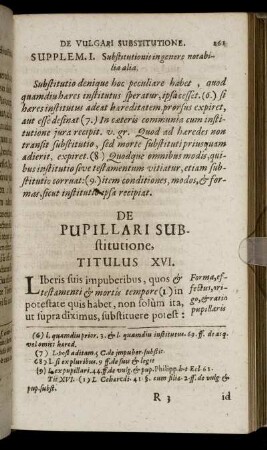 DE VULGARI SUBSTITUTIONE. 261
SUPPLEM. I. Substitutionis in genere notabi-
lia alia.
Substitutio denique hoc peculiare habet, quod
quamdiu hæres institutus speratur, ipsa cesset. (6.) si
hæres institutus adeat hæreditatem, prorsus expiret,
aut esse desinat (7.) In cæteris communia cum insti-
tutione jura recipit. v. gr. Quod ad hæredes non
transit substitutio, sed morte substituti priusquam
adierit, expiret. (8) Quodque omnibus modis, qui-
bus institutio seu testamentum vitiatur, etiam sub-
stitutio corruat: (9.) item conditiones, modos, & for-
mas, sicut institutio ipsa recipiat.
DE
PUPILLARI SUB-
stitutione,
TITULUS XVI.
LIberis suis impuberibus, quos &
testamenti & mortis tempore (1) in
potestate quis habet, non solùm ita,
ut supra diximus, substituere potest:
Forma, ef-
fectus, ori-
go, & ratio
pupillaris
(6) l. quamdiu prior. 3. & l. quamdiu institutus. 69. ff. de acq.
vel omitt: hæred.
(7) L. post aditam. 5. C. de impuber. substit.
(8) L. si ex pluribus. 9 ff. de suis & legit
(9) L. ex pupillari. 44. ff. de vulg. & pup. Philipp. hic Ecl 61.
Tit XVI. (1) L. Cohæredi. 41 §. cum filiæ. 2. ff. de vulg &
pup. subst.
R 3 id